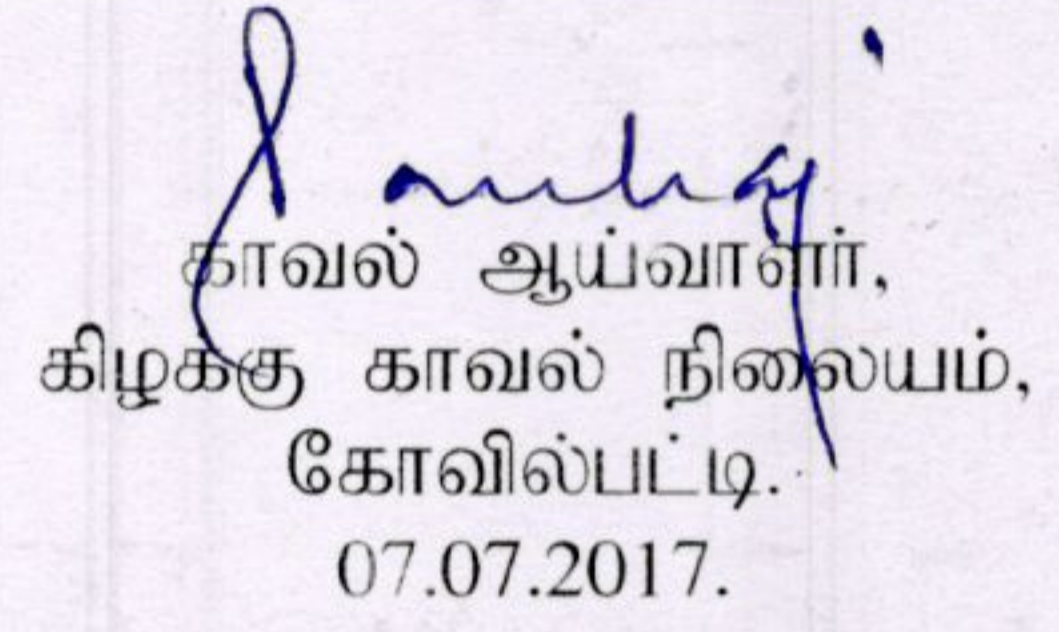 காவல் ஆய்வாளர்,
கிழக்கு காவல் நிலையம்,
கோவில்பட்டி.
07.07.2017.